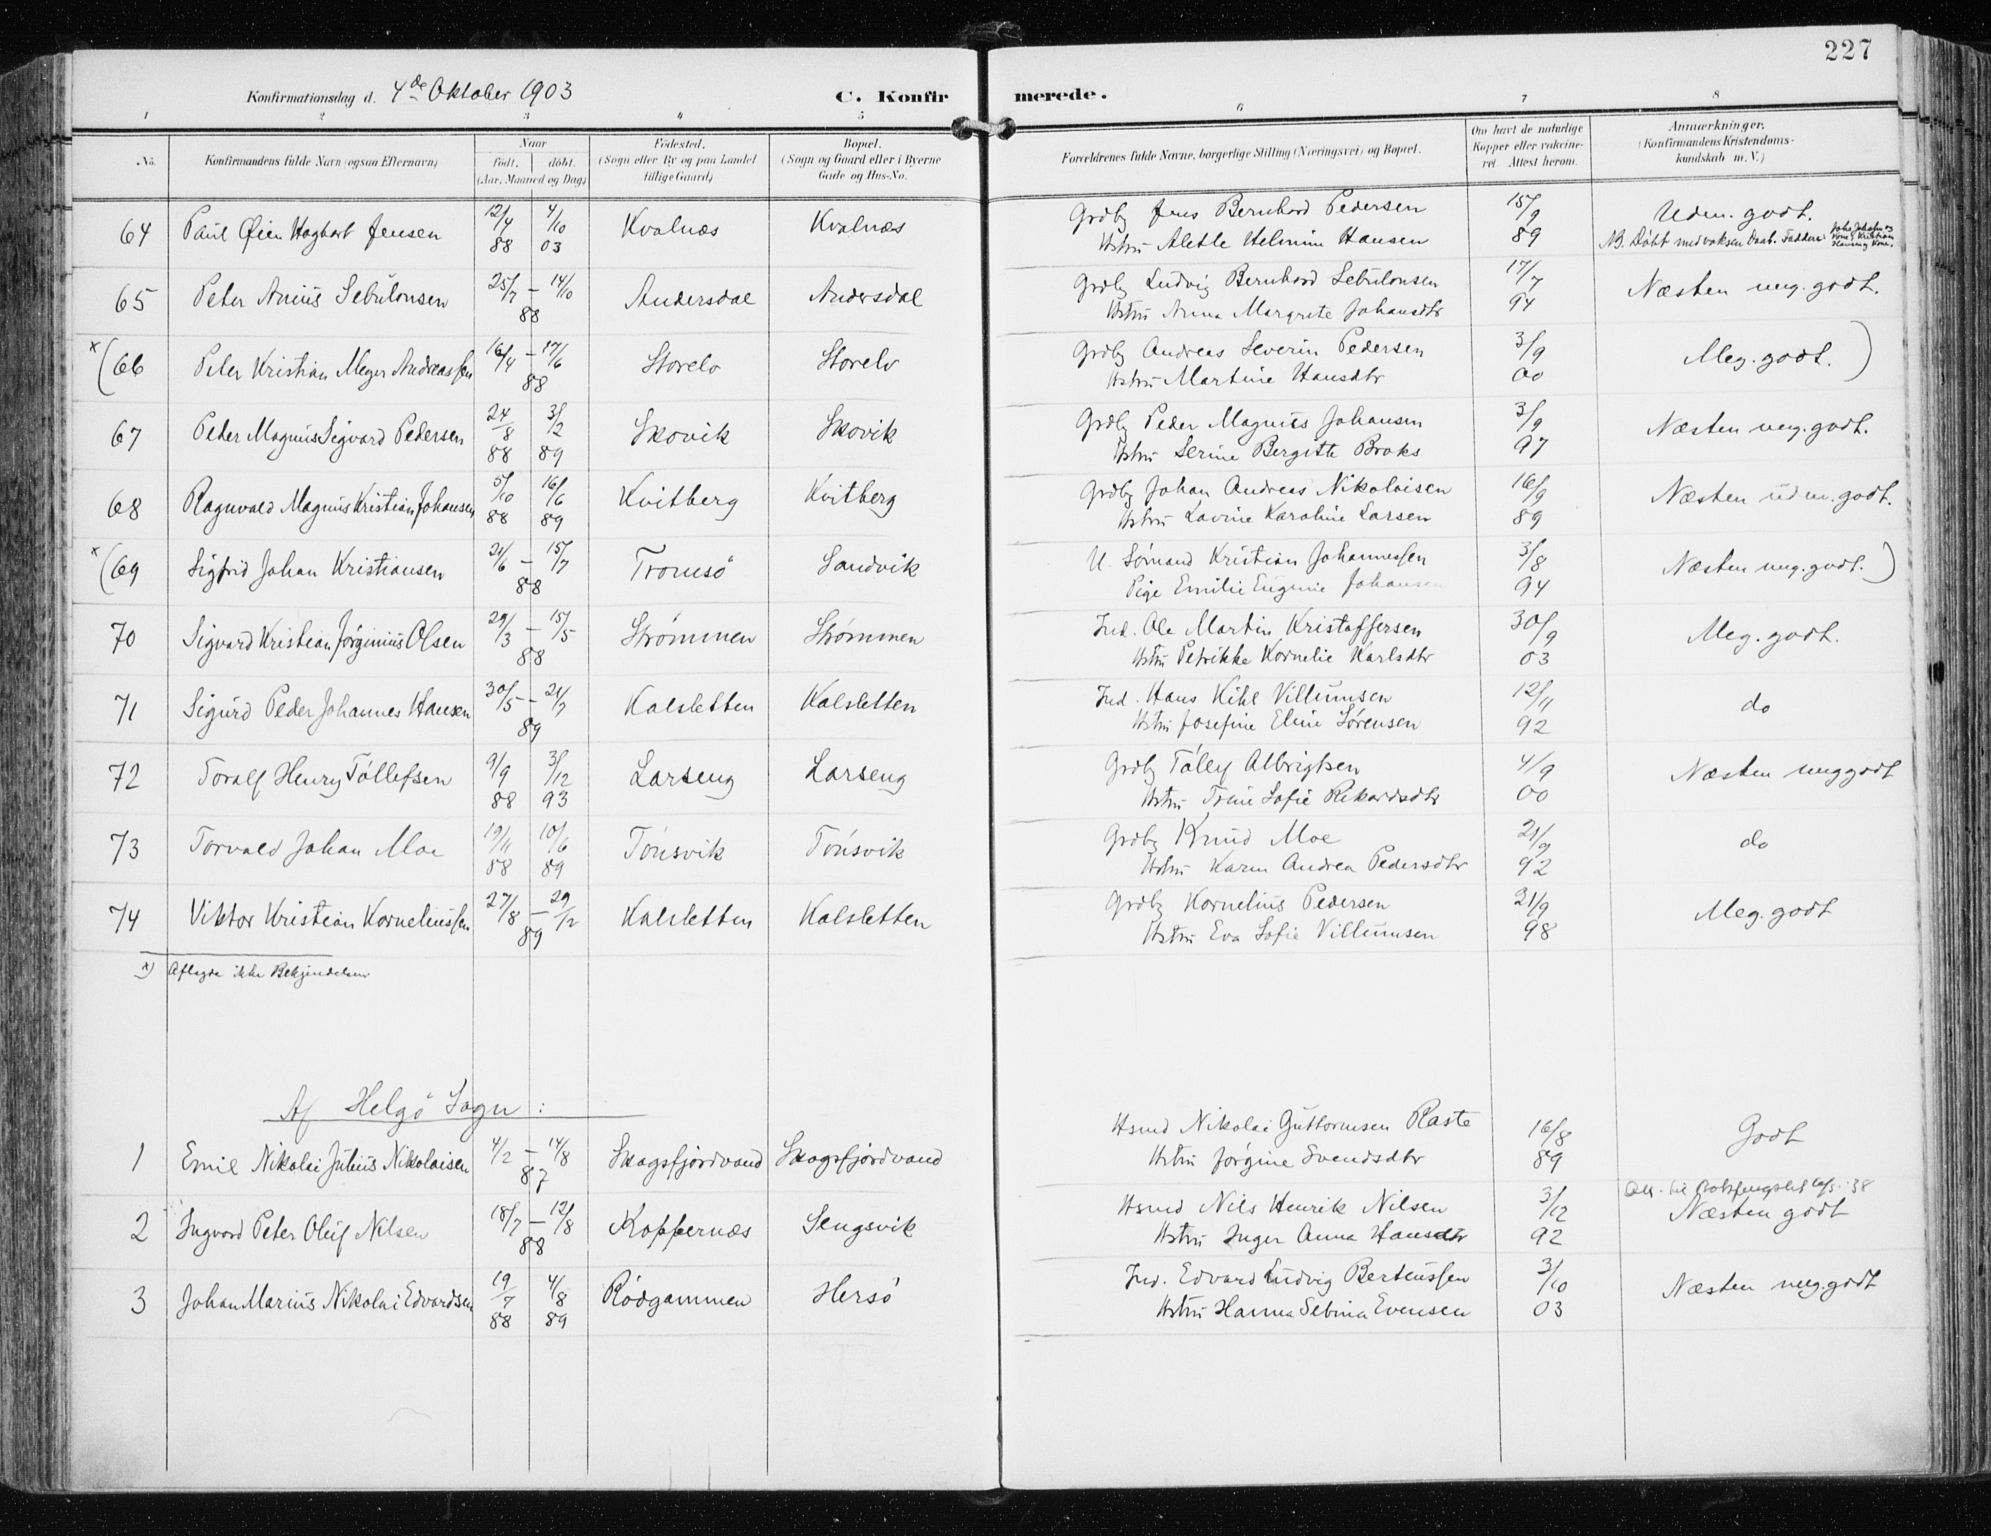 227
Konfirmationsdag d. 4de Oktober 1903 C. Konfirmerede.
1 2 3 4 5 6 7 8
No. Konfirmandens fulde Navn (ogsaa Efternavn) Naar født. døbt. (Aar, Maaned og Dag) Fødested. (Sogn eller By og paa Landet tillige Gaard) Bopæl. (Sogn og Gaard eller i Byerne Gade og Hus-No. Forældrenes fulde Navne, borgerlige Stilling (Næringsvei) og Bopæl. Om havt de naturlige Kopper eller vaccineret. Attest herom. Anmærkninger. (Konfirmandens Kristendomskundskab m. V.)
64 Paul Øien Hagbart Jensen 12/4 88 4/10 03 Kvalnæs Kvalnæs Grdbg Jens Bernhard Pedersen 15/9 89 Udm. godt.
Hstru Aletle Helmine Hansen NB. Døbt med voksen Daab. Faddere:
65 Peter Anius Sebulonsen 25/7 - 14/10 88 Andersdal Andersdal Grdbg Ludvig Bernhard Sebulonsen 17/7 94 Næsten meg. godt.
Hstru Anna Margrete Johansdtr
x (66 Peter Kristian Meyer Andreassen 16/4 - 17/6 88 Storelv Storelv Grdbg Andreas Severin Pedersen 3/9 00 Meg. godt. )
Hstru Martine Hansdtr
67 Peter Magnus Sigvard Pedersen 24/8 88 3/2 89 Skovik Skovik Grdbg Peder Magnus Johansen 3/9 97 Næsten meg. godt.
Hstru Serine Bergitte Broks
68 Ragnvald Magnus Kristian Johansen 5/10 88 16/6 89 Kvitberg Kvitberg Grdbg Johan Andreas Nikolaisen 16/9 89 Næsten udm. godt.
Hstru Lavine Karoline Larsen
x (69 Sigfrid Johan Kristiansen 21/6 - 15/7 88 Tromsö Sandvik U. Sömand Kristian Johannessen 3/8 94 Næsten meg. godt. )
Pige Emilie Eugenie Johansen
70 Sigvard Kristian Jørginius Olsen 29/3 - 15/5 88 Strømmen Strømmen Ind. Ole Martin Kristoffersen 30/9 03 Meg. godt.
Hstru Petrikke Kornelie Karlsdtr
71 Sigurd Peder Johannes Hansen 30/5 - 21/7 89 Kalsletten Kalsletten Ind. Hans Kihl Villumsen 12/11 92 do
Hstru Josefine Eline Sørensen
72 Toralf Henry Tøllefsen 9/9 88 3/12 93 Larseng Larseng Grdbg Tølløf Albrigtsen 4/9 00 Næsten meg godt
Hstru Trine Sofie Rikardsdtr
73 Torvald Johan Moe 19/11 88 10/6 89 Tønsvik Tønsvik Grdbg Knud Moe 21/9 92 do
Hstru Karen Andrea Pedersdtr
74 Viktor Kristian Korneliussen 27/8 - 29/12 89 Kalsletten Kalsletten Grdbg Kornelius Pedersen 21/9 98 Meg. godt
Hstru Eva Sofie Villumsen
x) Aflagde ikke Bekjendelsen
Af Helgö Sogn :
1 Emil Nikolai Julius Nikolaisen 4/2 - 14/8 87 Skogsfjordvand Skogsfjordvand Hsmd Nikolai Guttormsen Raste 16/8 89 Godt
Hstru Jørgine Svendsdtr
2 Ingvard Peter Oluf Nilsen 18/7 - 12/8 88 Koppernæs Sengsvik Hsmd Nils Henrik Nilsen 3/12 92 Næsten godt
Hstru Inger Anna Hansdtr
3 Johan Marius Nikolai Edvardsen 19/7 88 4/8 89 Rödgammen Hersö Ind. Edvard Ludvig Berteussen 3/10 03 Næsten meg. godt
Hstru Hanna Sebina Evensen